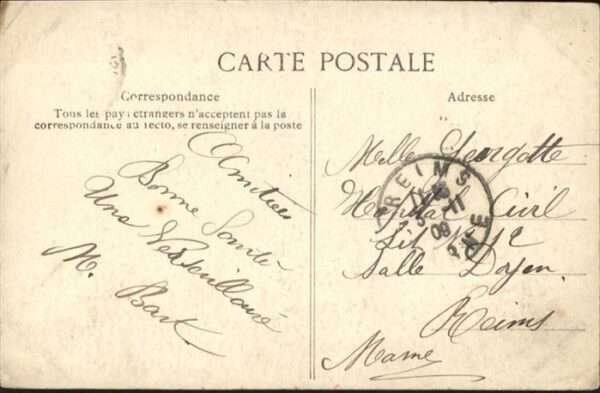 CARTE POSTALE
Correspondance
Tous les pays étrangers n'acceptent pas la
correspondance au recto, se renseigner à la poste
Amitiés
Bonne Santé
Une
M. Bart
Adresse
Melle Georgette
Hopital Civil
Lit N° 12
Salle Doyen
Reims
Marne
REIMS
11
09